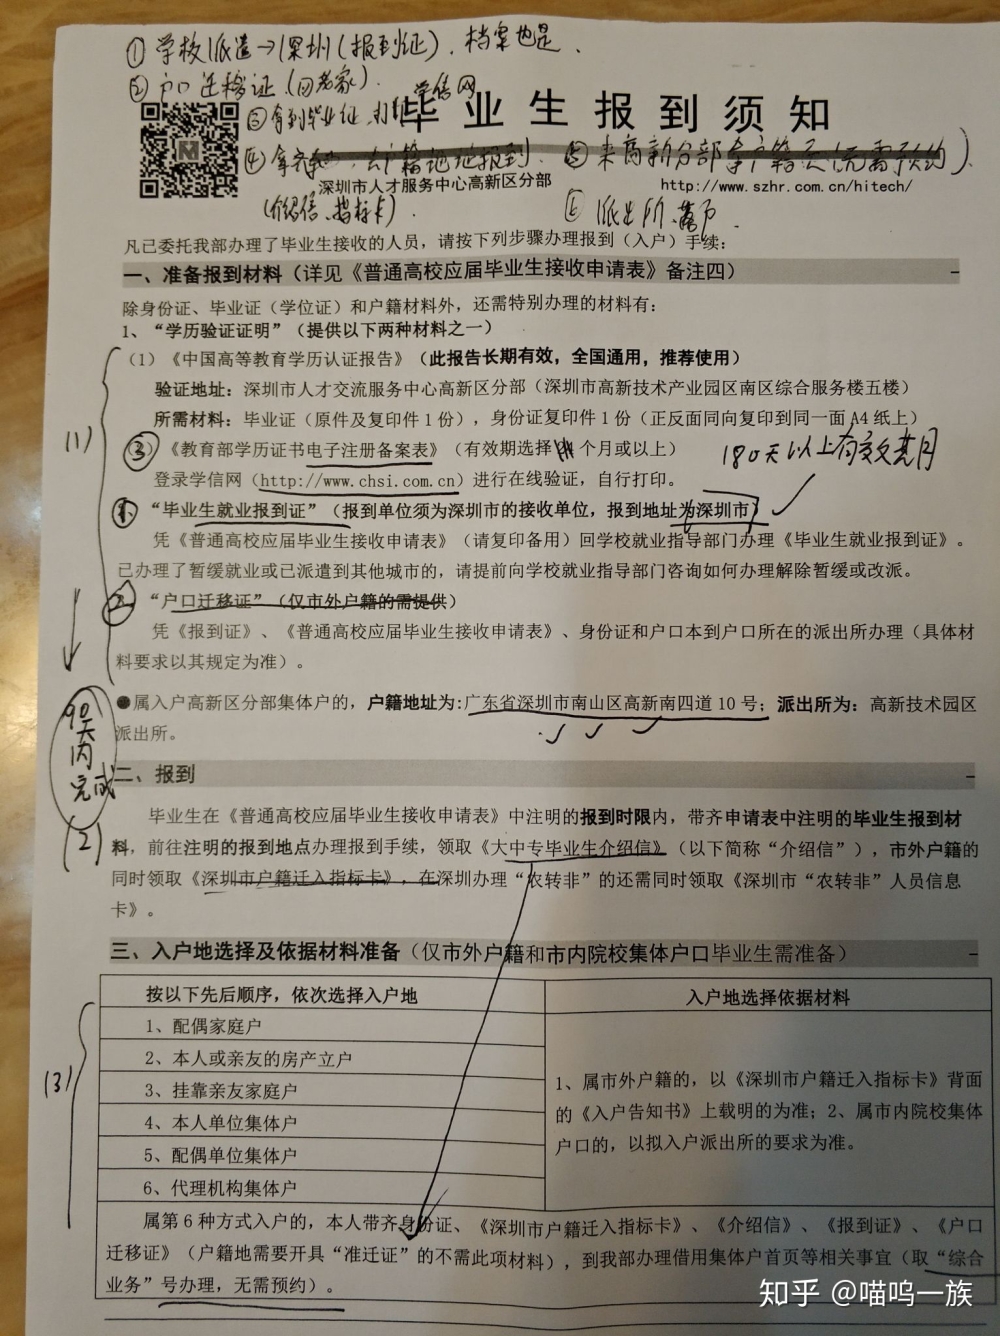 ① 学校派遣→深圳(报到证)．档案也是．
② 户口迁移证．(回老家)．
③ 拿到毕业证，打印学信网
毕业生报到须知
④ 拿齐 去户籍地报到．⑤ 来高新分部拿户籍页(无需预约)．
深圳市人才服务中心高新区分部
http://www.szhr.com.cn/hitech/
(介绍信、指标卡)．
⑥ 派出所，落户．
凡已委托我部办理了毕业生接收的人员，请按下列步骤办理报到（入户）手续：
一、准备报到材料（详见《普通高校应届毕业生接收申请表》备注四）
除身份证、毕业证（学位证）和户籍材料外，还需特别办理的材料有：
1、“学历验证证明”（提供以下两种材料之一）
（1）《中国高等教育学历认证报告》（此报告长期有效，全国通用，推荐使用）
验证地址：深圳市人才交流服务中心高新区分部（深圳市高新技术产业园区南区综合服务楼五楼）
所需材料：毕业证（原件及复印件 1 份），身份证复印件 1 份（正反面同向复印到同一面 A4 纸上）
(1)
③《教育部学历证书电子注册备案表》（有效期选择 个月或以上）
180天以上有效
登录学信网（http://www.chsi.com.cn）进行在线验证，自行打印。
① “毕业生就业报到证”（报到单位须为深圳市的接收单位，报到地址为深圳市）
凭《普通高校应届毕业生接收申请表》（请复印备用）回学校就业指导部门办理《毕业生就业报到证》。
已办理了暂缓就业或已派遣到其他城市的，请提前向学校就业指导部门咨询如何办理解除暂缓或改派。
2、“户口迁移证”（仅市外户籍的需提供）
凭《报到证》、《普通高校应届毕业生接收申请表》、身份证和户口本到户口所在的派出所办理（具体材
料要求以其规定为准）。
●属入户高新区分部集体户的，户籍地址为：广东省深圳市南山区高新南四道 10 号；派出所为：高新技术园区
派出所。
90天内完成
二、报到
(2)
毕业生在《普通高校应届毕业生接收申请表》中注明的报到时限内，带齐申请表中注明的毕业生报到材
料，前往注明的报到地点办理报到手续，领取《大中专毕业生介绍信》（以下简称“介绍信”），市外户籍的
同时领取《深圳市户籍迁入指标卡》，在深圳办理“农转非”的还需同时领取《深圳市“农转非”人员信息
卡》。
三、入户地选择及依据材料准备（仅市外户籍和市内院校集体户口毕业生需准备）
按以下先后顺序，依次选择入户地
入户地选择依据材料
(3)
1、配偶家庭户
2、本人或亲友的房产立户
3、挂靠亲友家庭户
4、本人单位集体户
5、配偶单位集体户
6、代理机构集体户
1、属市外户籍的，以《深圳市户籍迁入指标卡》背面
的《入户告知书》上载明的为准；2、属市内院校集体
户口的，以拟入户派出所的要求为准。
属第 6 种方式入户的，本人带齐身份证、《深圳市户籍迁入指标卡》、《介绍信》、《报到证》、《户口
迁移证》（户籍地需要开具“准迁证”的不需此项材料），到我部办理借用集体户首页等相关事宜（取“综合
业务”号办理，无需预约）。
知乎 @喵呜一族